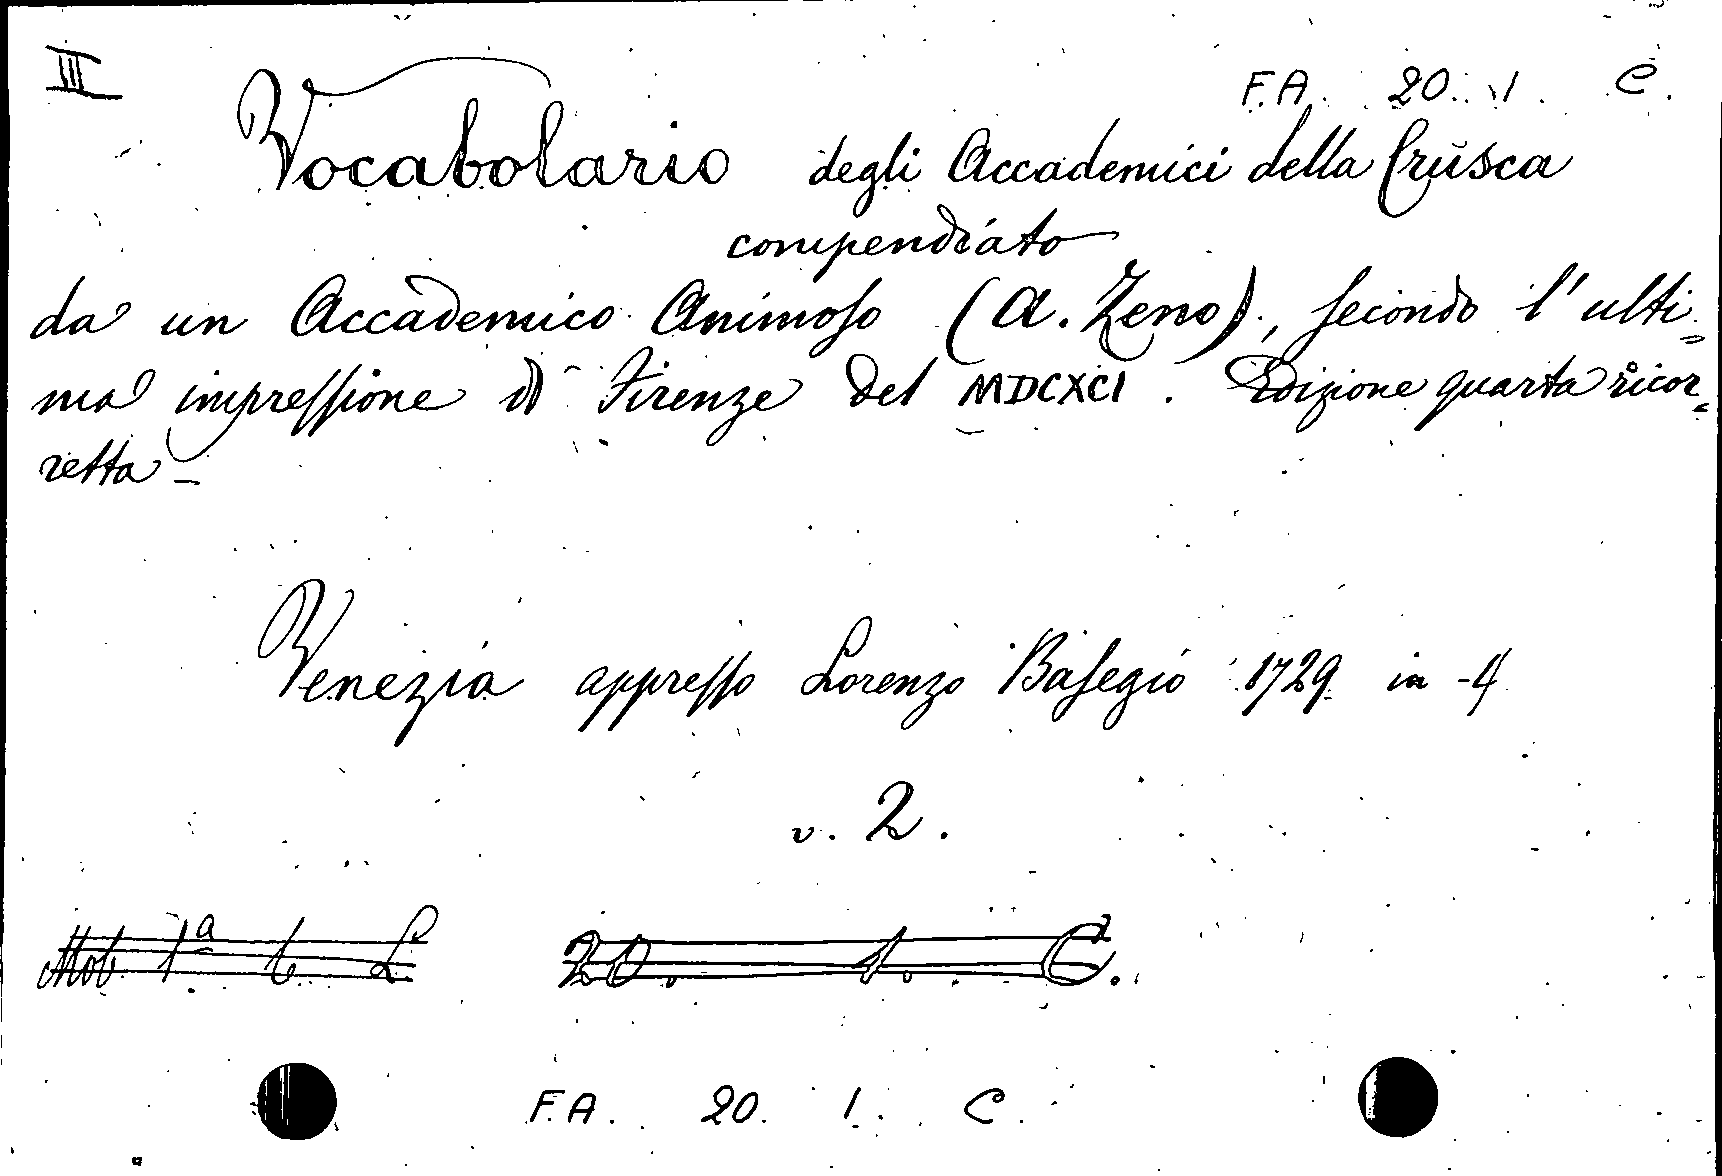 III
F.A. 20. 1. C.
Vocabolario degli Accademici della Crusca
compendiato
da un Accademico Animoso (A. Zeno), secondo l'ulti=
ma impressione di Firenze del MDCXCI. Edizione quarta ricor=
retta -
Venezia appresso Lorenzo Basegio 1729 in -4
v. 2.
Mob 1ª 6. L 20. 1. C.
F.A. 20. 1. C.